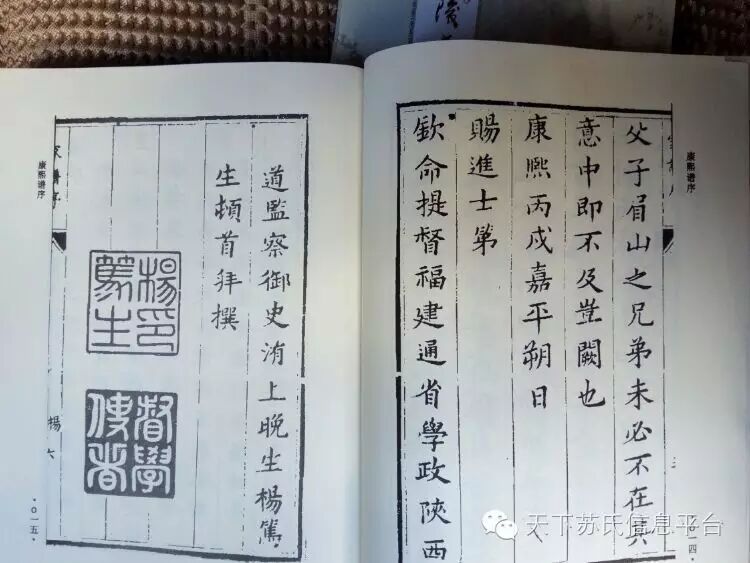 康熙谱序
父子眉山之兄弟未必不在其
意中即不及豈闕也
康熙丙戌嘉平朔日
賜進士第
欽命提督福建通省學政陝西
道監察御史洧上晚生楊篤
生頓首拜撰
楊印篤生
督學使者
家譜序
楊六
康熙谱序
·〇一五·
天下苏氏信息平台